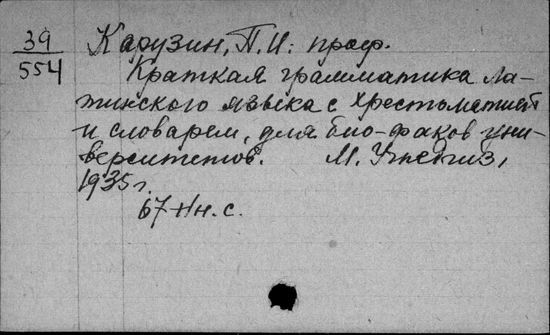 39
554
Карузин, П.И. проф.
Краткая грамматика ла-
тинского языка с хрестоматией
и словарем, для био-факов уни-
верситетов. М. Учпедгиз,
1935 г.
67 + 1 н. с.